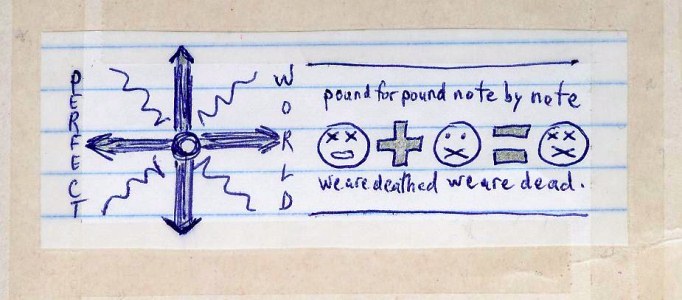 PERFECT
WORLD
pound for pound note by note
we are deathed we are dead.